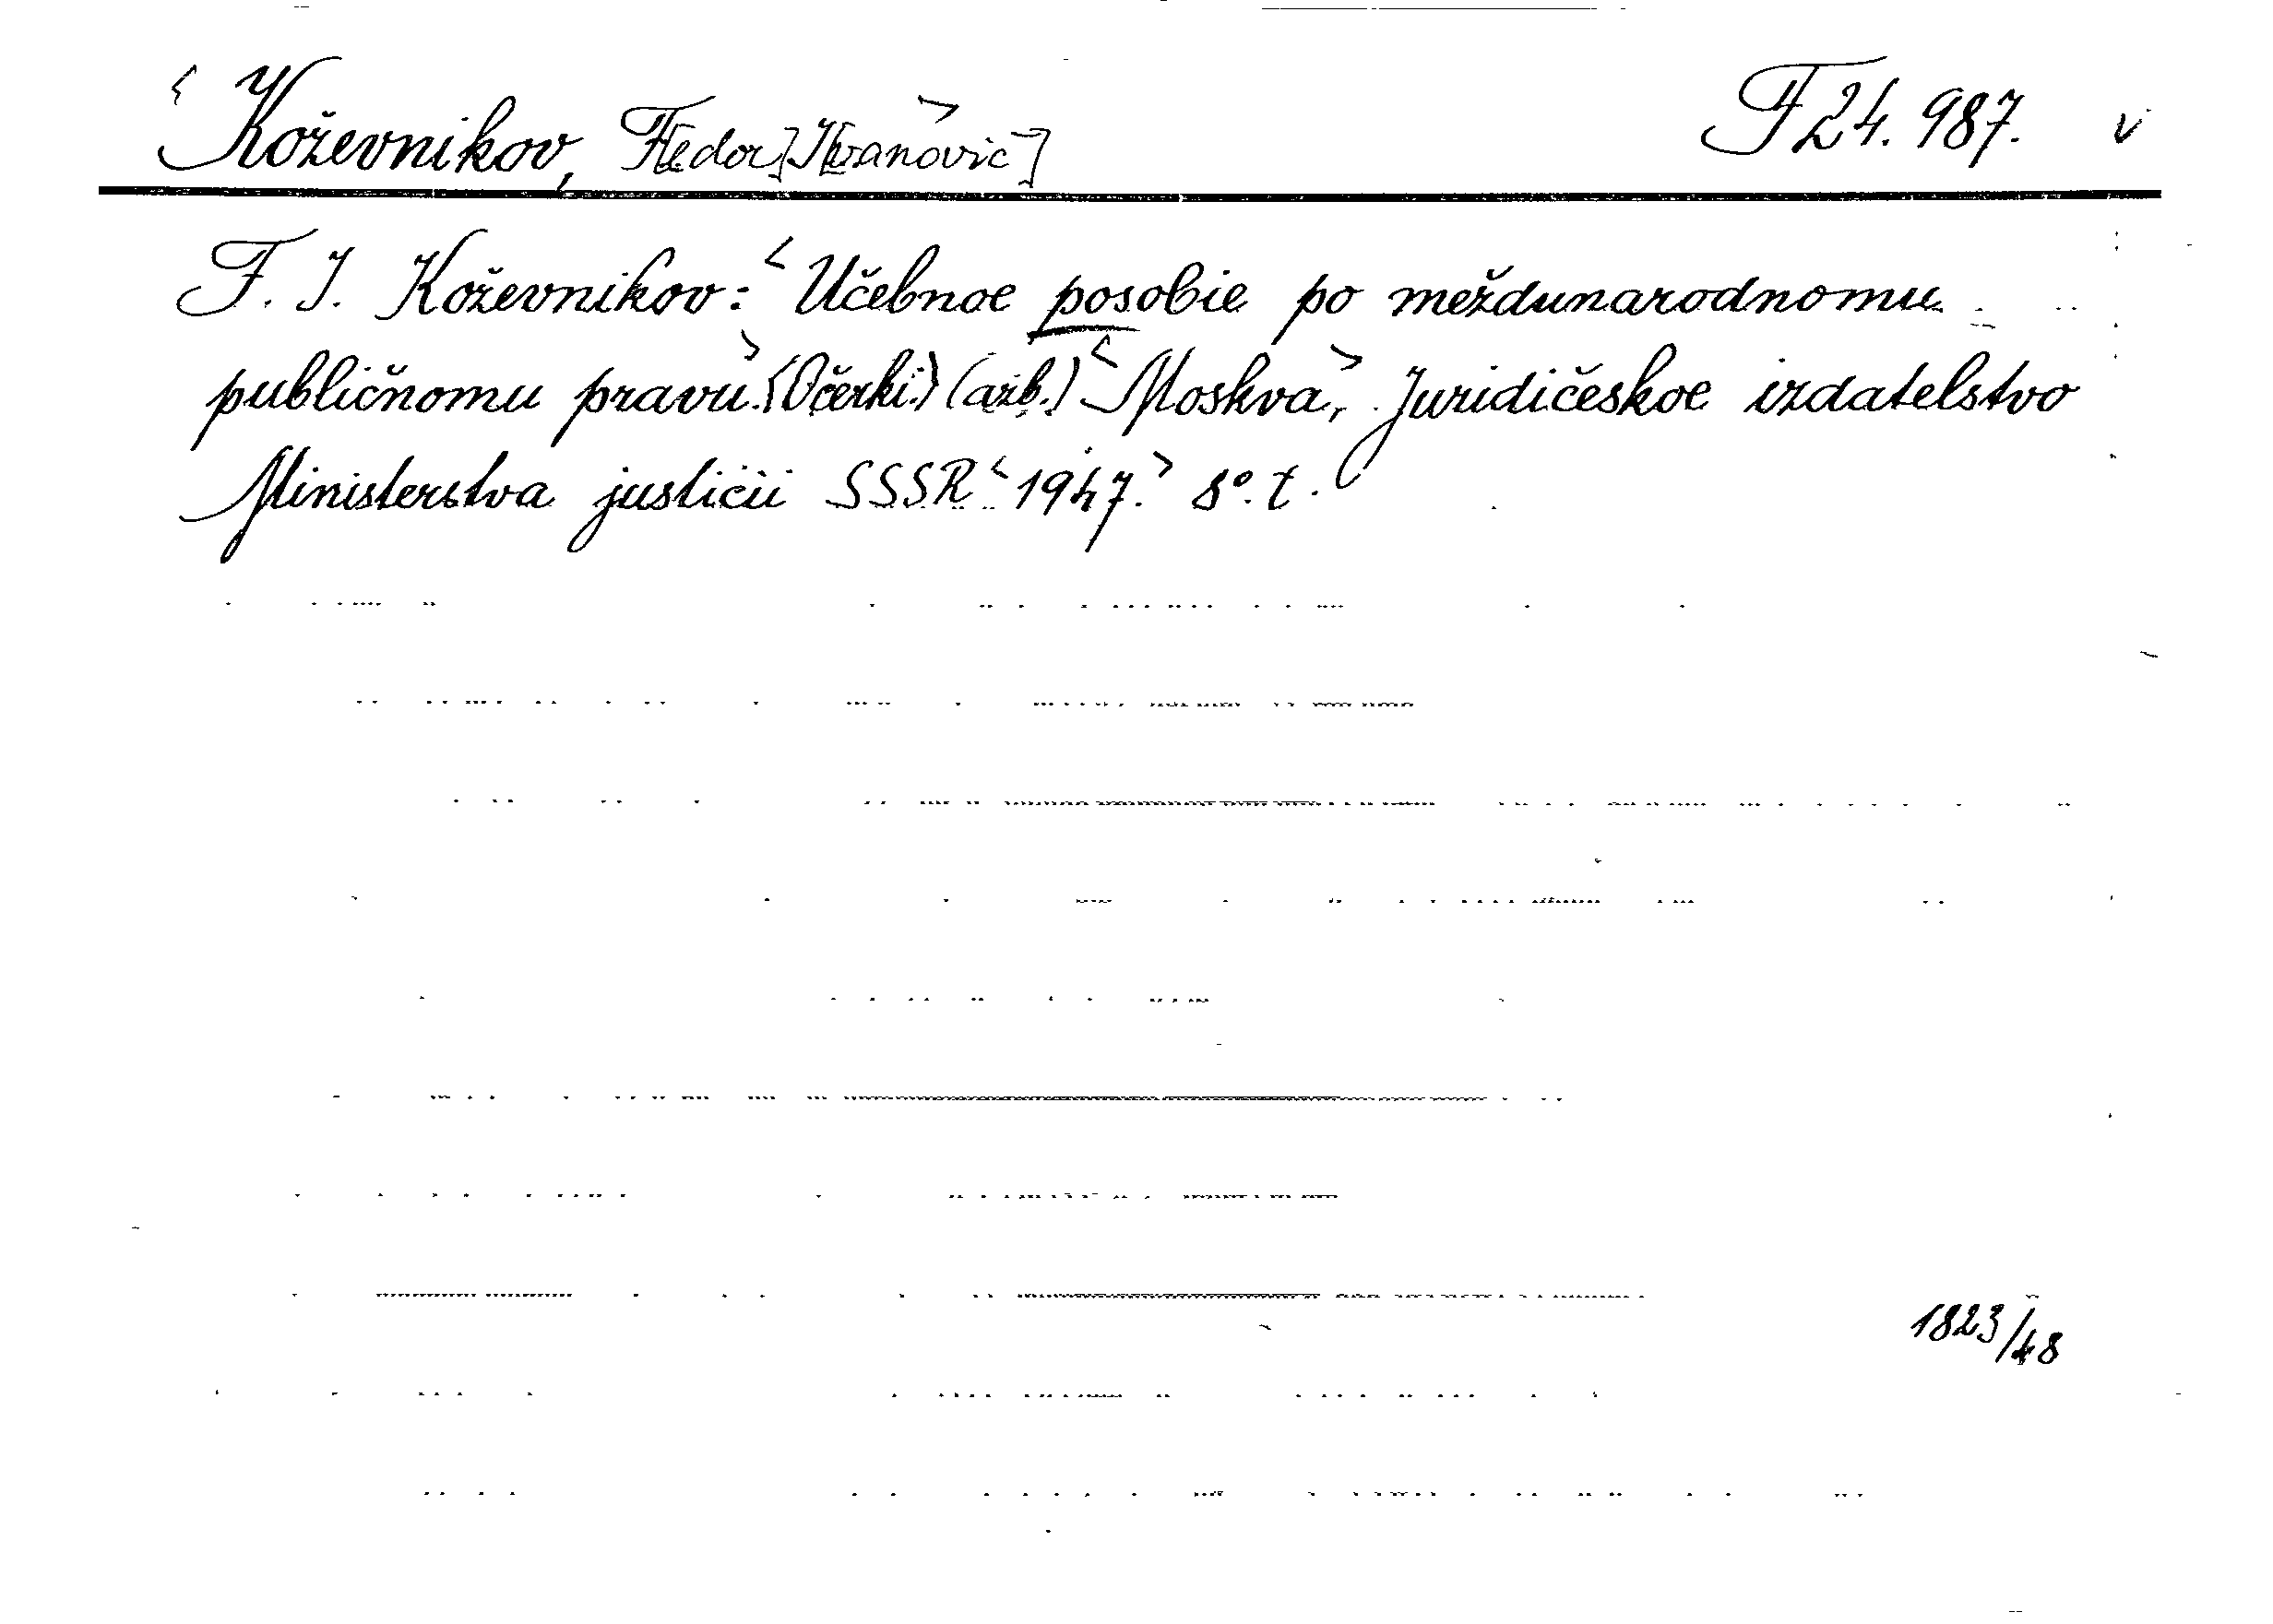 < Koževnikov, F[edor] I[vanovič] > F 24.987. v
F. I. Koževnikov: < Učebnoe posobie po meždunarodnomu
publičnomu pravu. > <Očerki.> (azb.) < Moskva, > Juridičeskoe izdatelstvo
Ministerstva justicii SSSR < 1947. > 8°. t.
1823/48